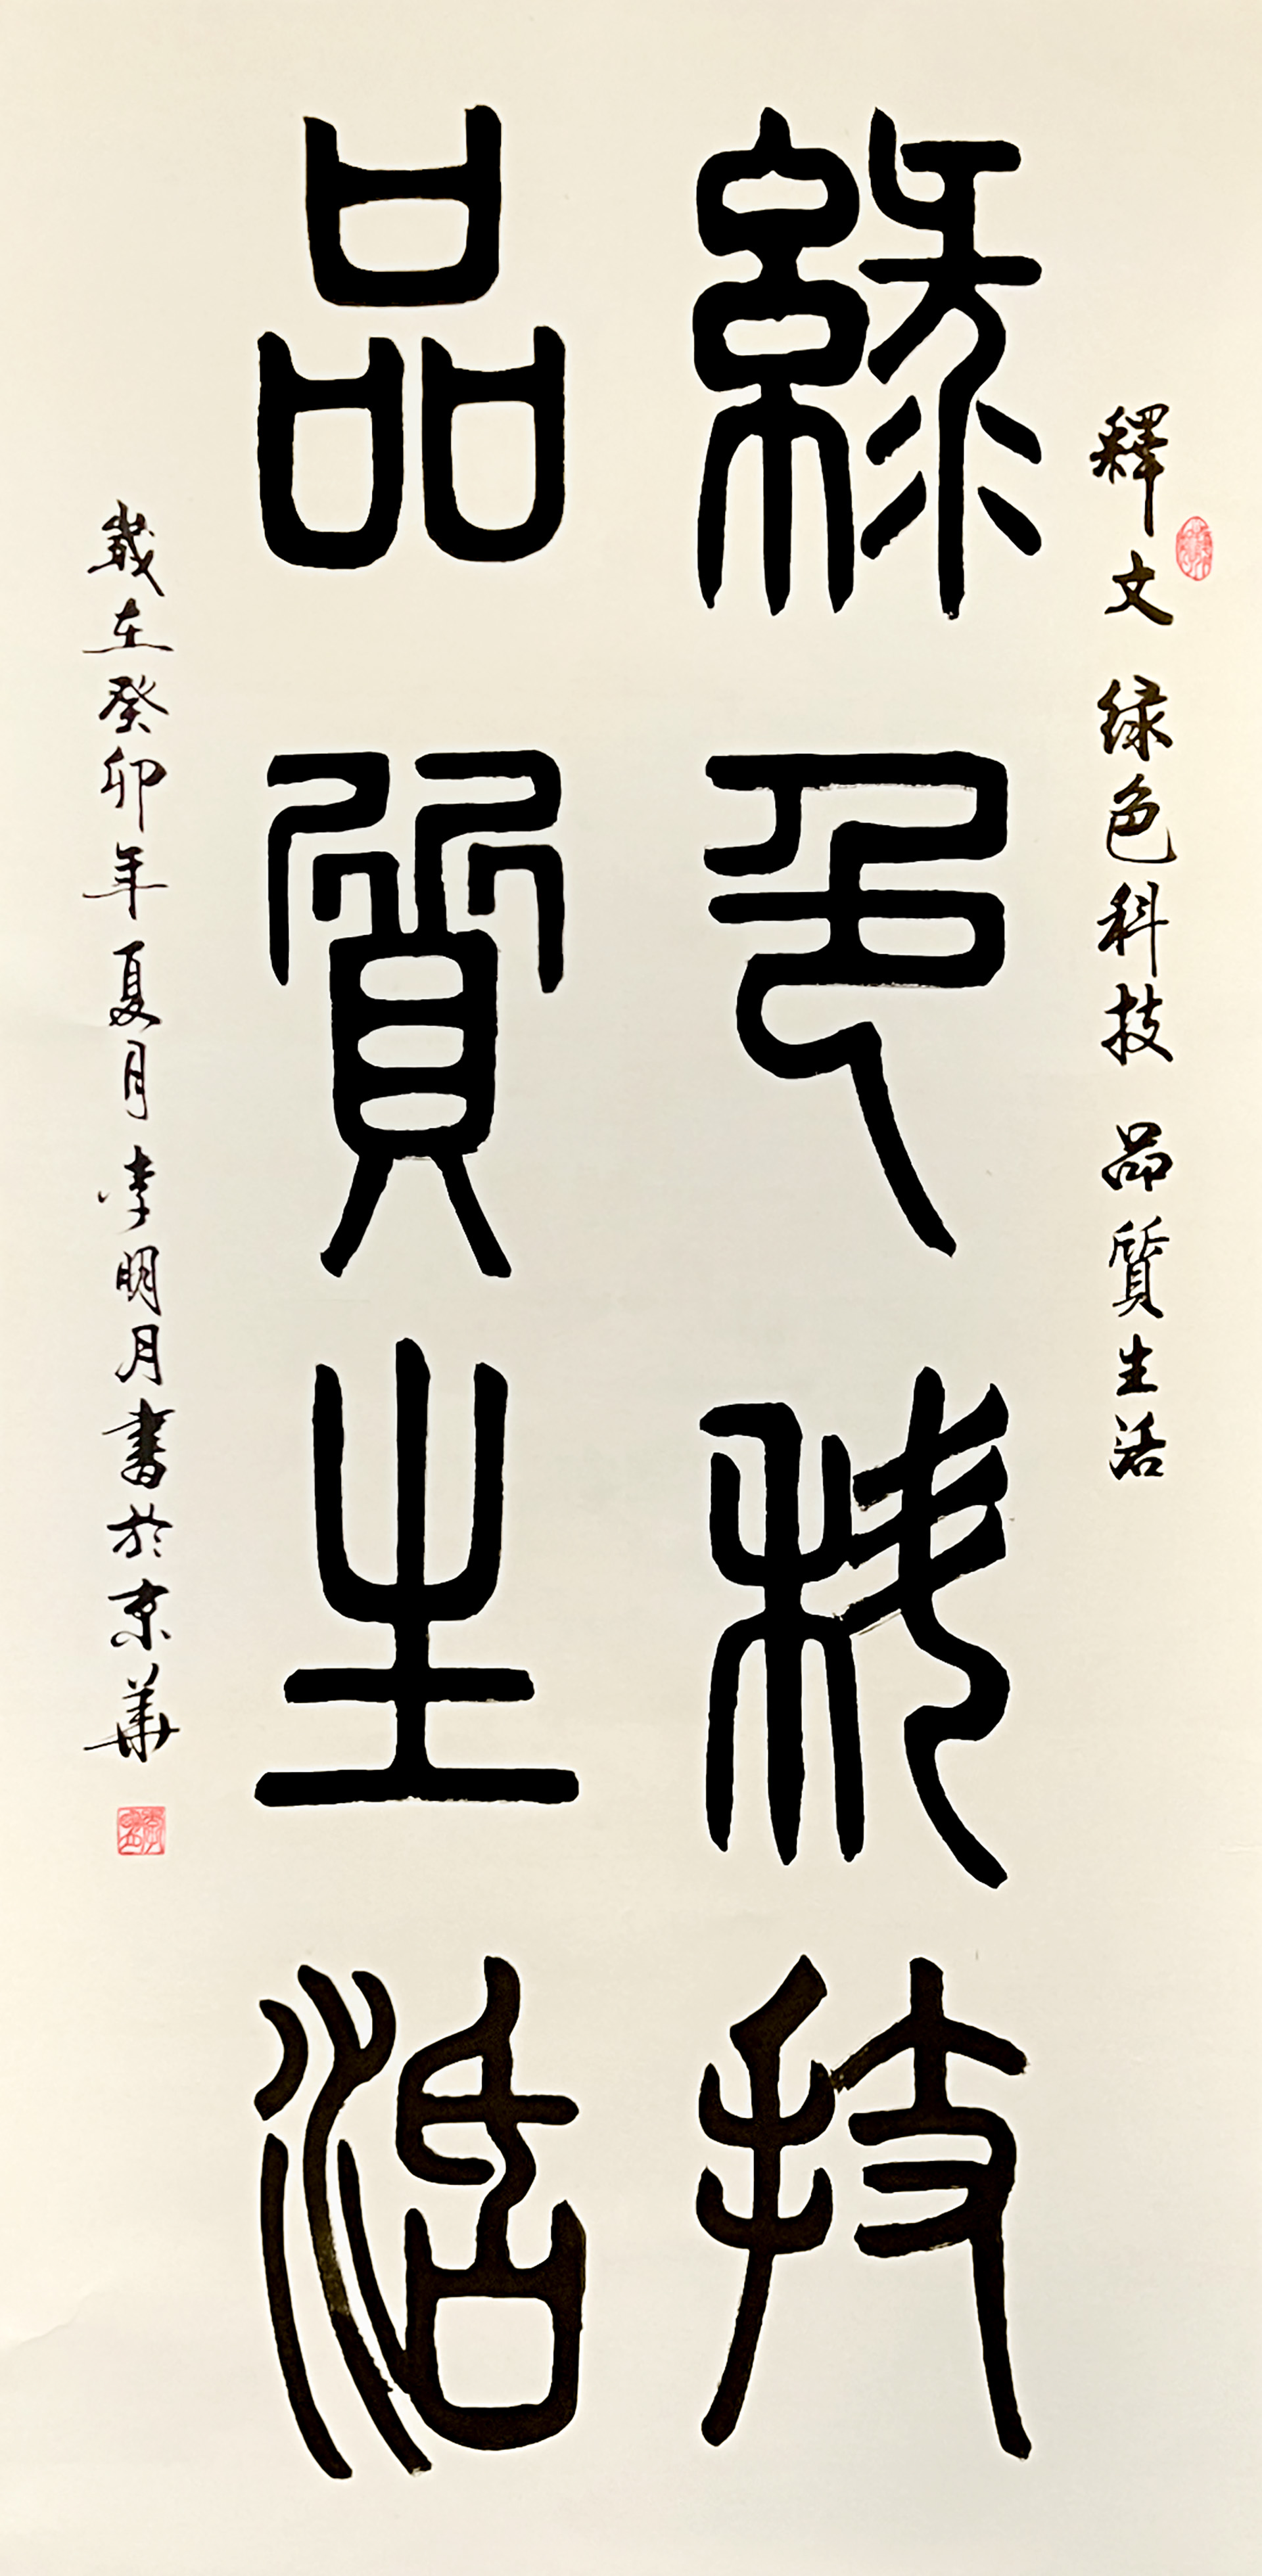 釋文 绿色科技 品質生活
綠色科技
品質生活
歲在癸卯年夏月李明月書於京華